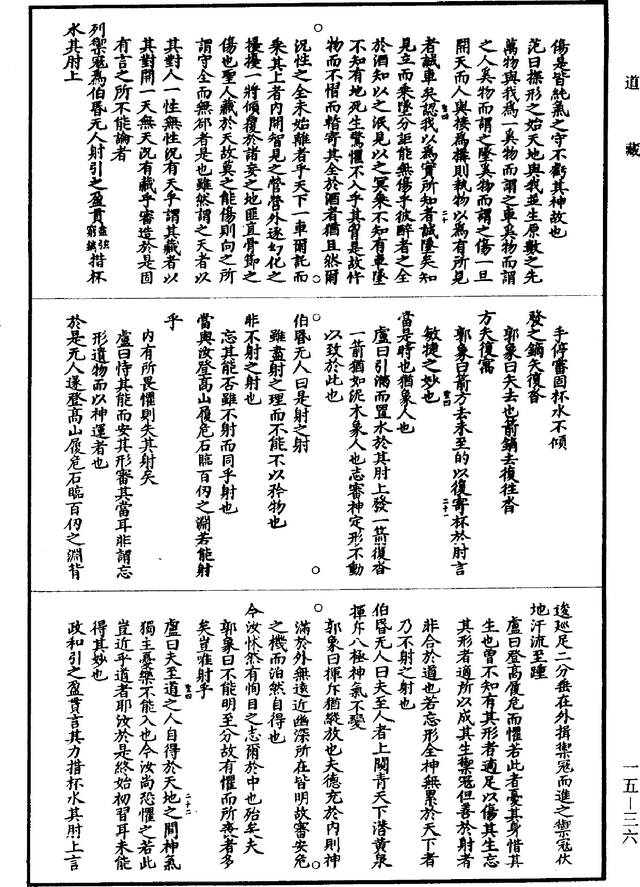 道藏
傷是皆純氣之守不虧其神故也
范曰撲形之始天地與我並生原數之先
萬物與我為一奚物而謂之車奚物而謂
之人奚物而謂之墜奚物而謂之傷一旦
開天而人與接為構則執物以為有所見
者誠車矣認我以為實所知者誠墜矣知
見立而乘墜分詎能無傷乎彼醉者之全
於酒知以之泯見以之冥乘不知有車墜
不知有地死生驚懼不入乎其胷是故忤
物而不慴而暫寄其全於酒者猶且然爾
況性之全未始離者乎天下一車爾託而
乘其上者内開智見之營營外逐幻化之
擾擾一將傾覆於諸妄之地匪直骨節之
傷也聖人藏於天故莫之能傷則向之所
謂守全而無郤者是也雖然謂之天者以
其對人一性無性況有天乎謂其藏者以
其對開一天無天況有藏乎審造於是固
有言之所不能論者
列禦寇為伯昏无人射引之盈貫盡弦窮鏑措杯
水其肘上
手停審固杯水不傾
發之鏑矢復沓
郭象曰矢去也箭鏑去復往沓
方矢復寓
郭象曰箭方去未至的以復寄杯於肘言
敏捷之妙也
當是時也猶象人也
盧曰引滿而置水於其肘上發一箭復沓
一箭猶如泥木象人也志審神定形不動
以致於此也
伯昏无人曰是射之射
雖盡射之理而不能不以矜物也
非不射之射也
忘其能否雖不射而同乎射也
當與汝登高山履危石臨百仞之淵若能射
乎
内有所畏懼則失其射矣
盧曰恃其能而安其形審其當耳非謂忘
形遺物而以神運者也
於是无人遂登高山履危石臨百仞之淵背
逡巡足二分垂在外揖禦寇而進之禦寇伏
地汗流至踵
盧曰登高履危而懼若此者憂其身惜其
生也曾不知有其形者適足以傷其生忘
其形者適所以成其生禦寇但善於射者
非合於道也若忘形全神無累於天下者
乃不射之射也
伯昏无人曰夫至人者上闚青天下潛黃泉
揮斥八極神氣不變
郭象曰揮斥猶縱放也夫德充於内則神
滿於外無遠近幽深所在皆明故審安危
之機而泊然自得也
今汝怵然有恂目之志爾於中也殆矣夫
郭象曰不能明至分故有懼而所喪者多
矣豈唯射乎
盧曰夫至道之人自得於天地之間神氣
獨主憂樂不能入也今汝尚恐懼之若此
豈近乎道者耶汝於是終始初習耳未能
得其妙也
政和引之盈貫言其力措杯水其肘上言
一五—三六